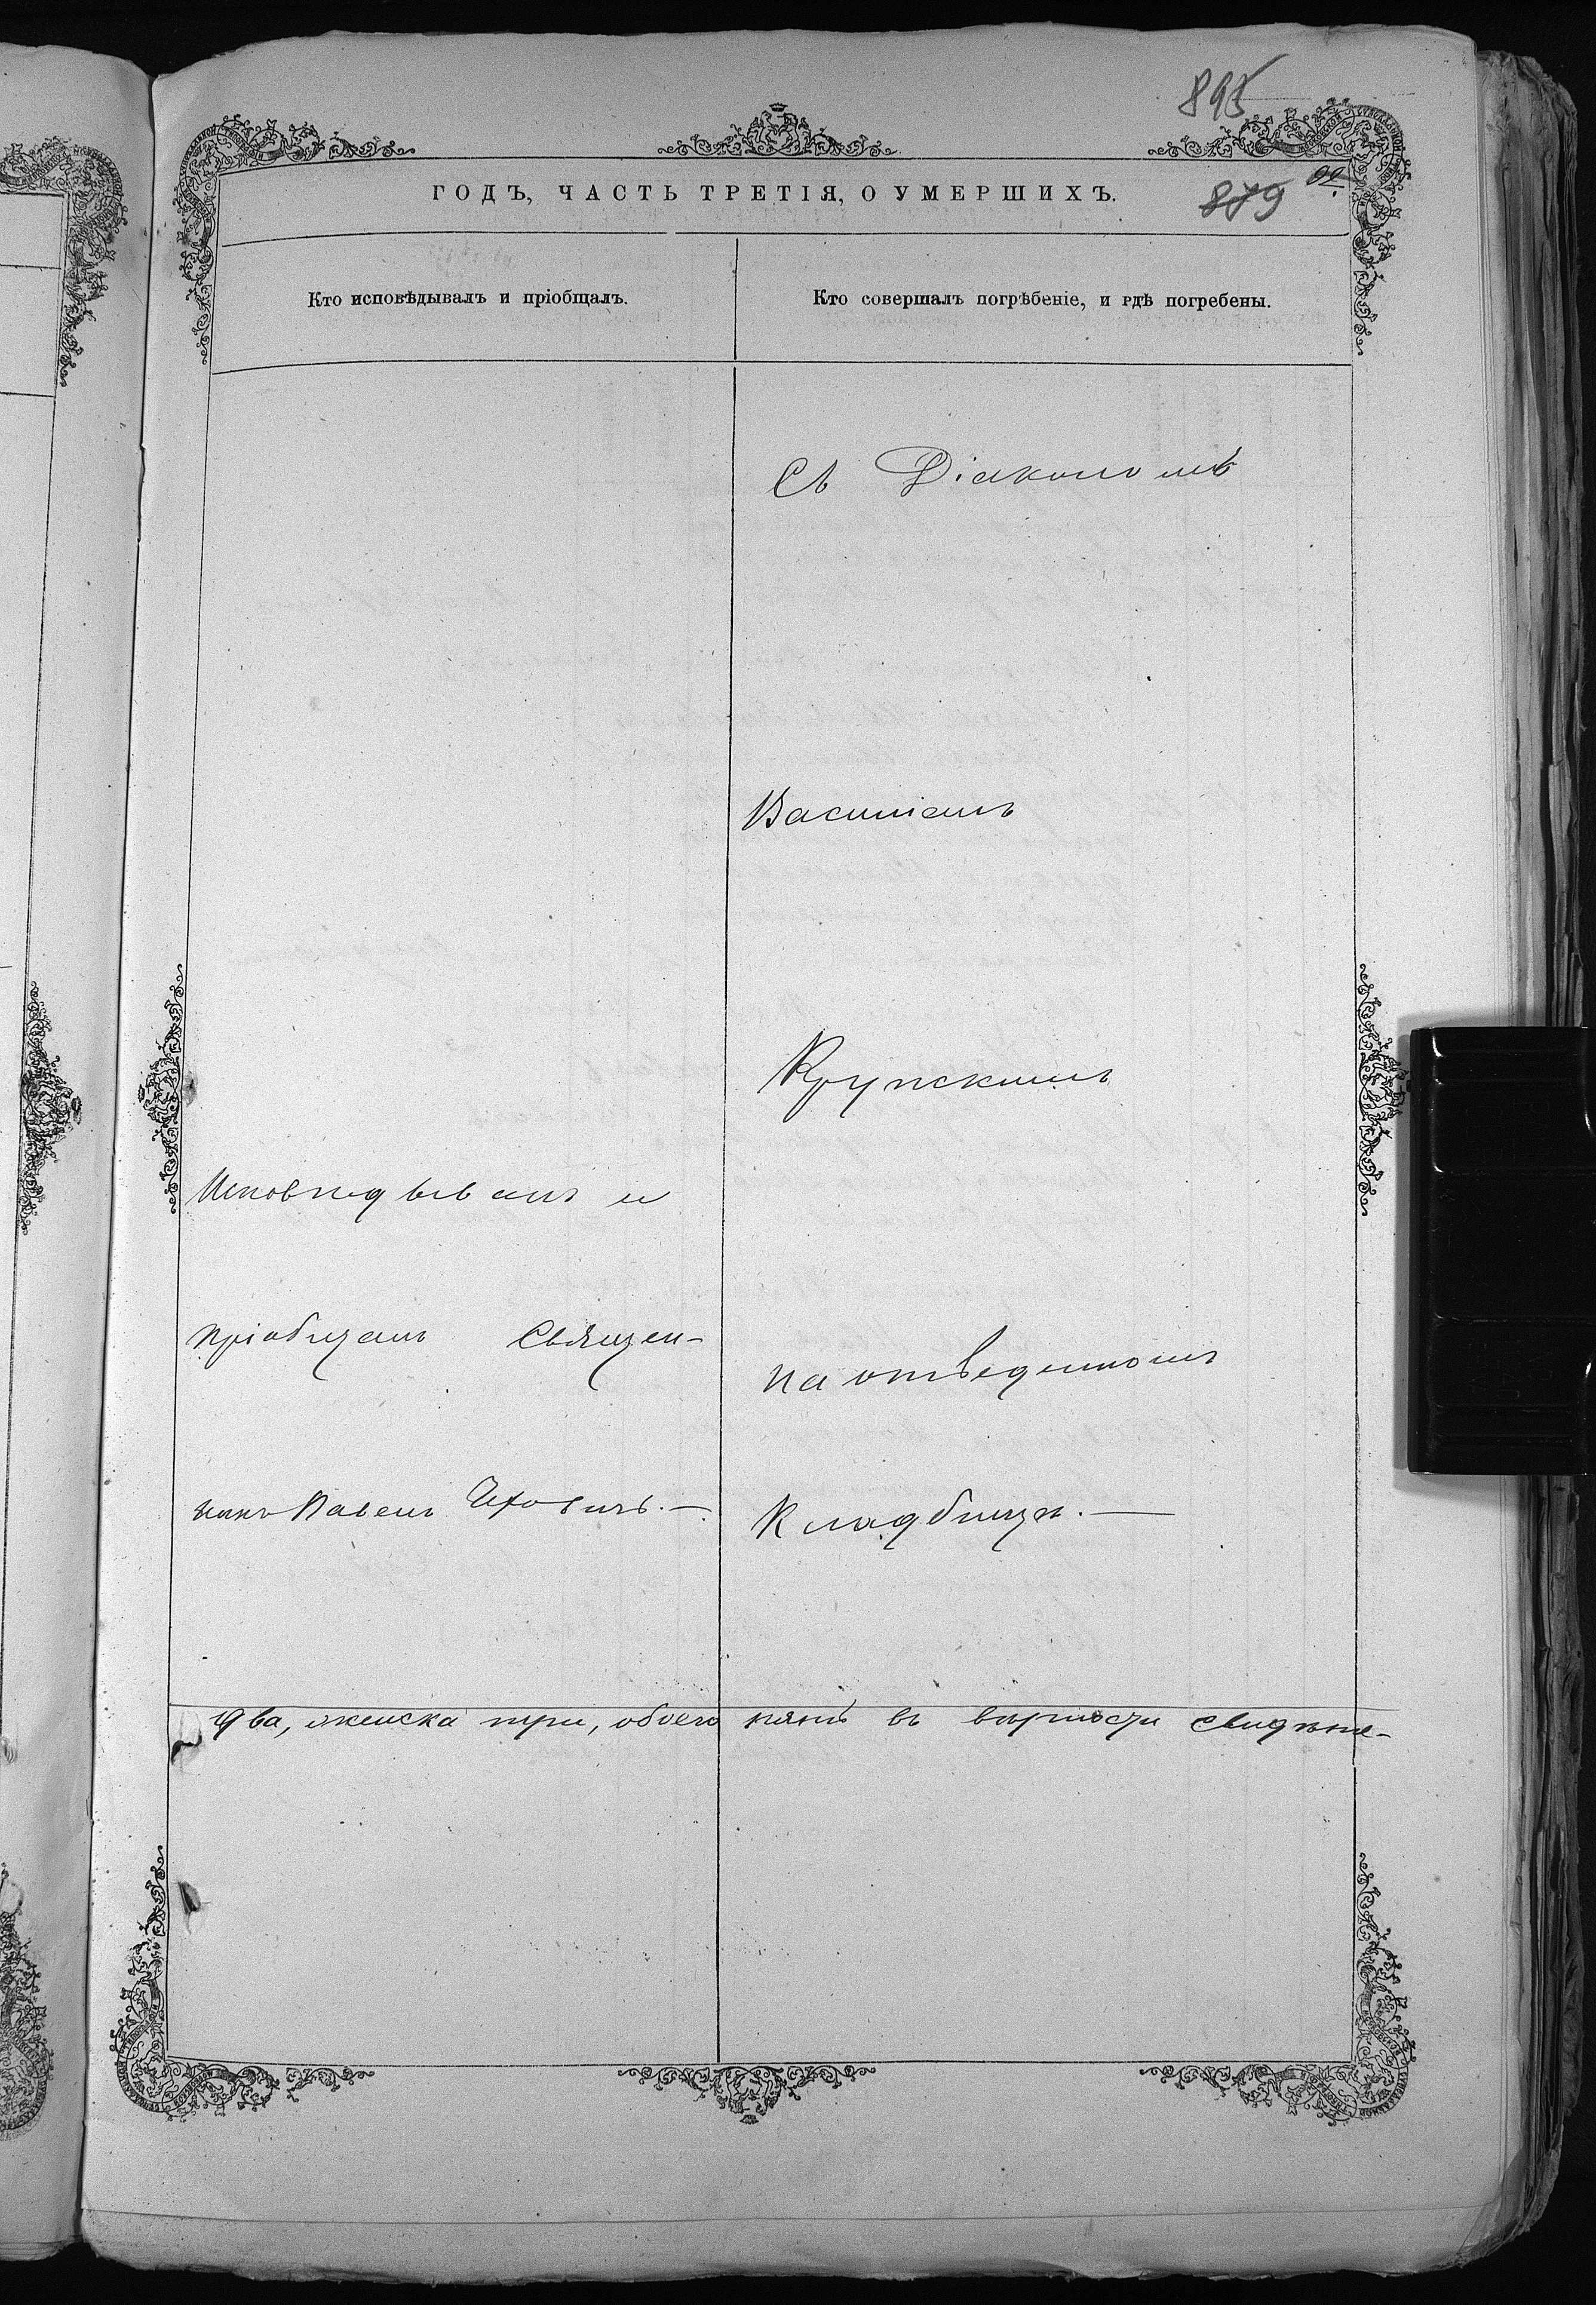 895
ГОДЪ, ЧАСТЬ ТРЕТІЯ, О УМЕРШИХЪ.
879
Кто исповѣдывалъ и пріобщалъ.
Кто совершалъ погрѣбеніе, и гдѣ погребены.
Съ Діакономъ
Василіемъ
Крупскимъ
на отведенномъ
Кладбищѣ. —
Исповѣдывалъ и
пріобщалъ Священ-
никъ Павелъ Чеховичъ. —
два, женска три, обоего пять въ вѣрности свидѣте-